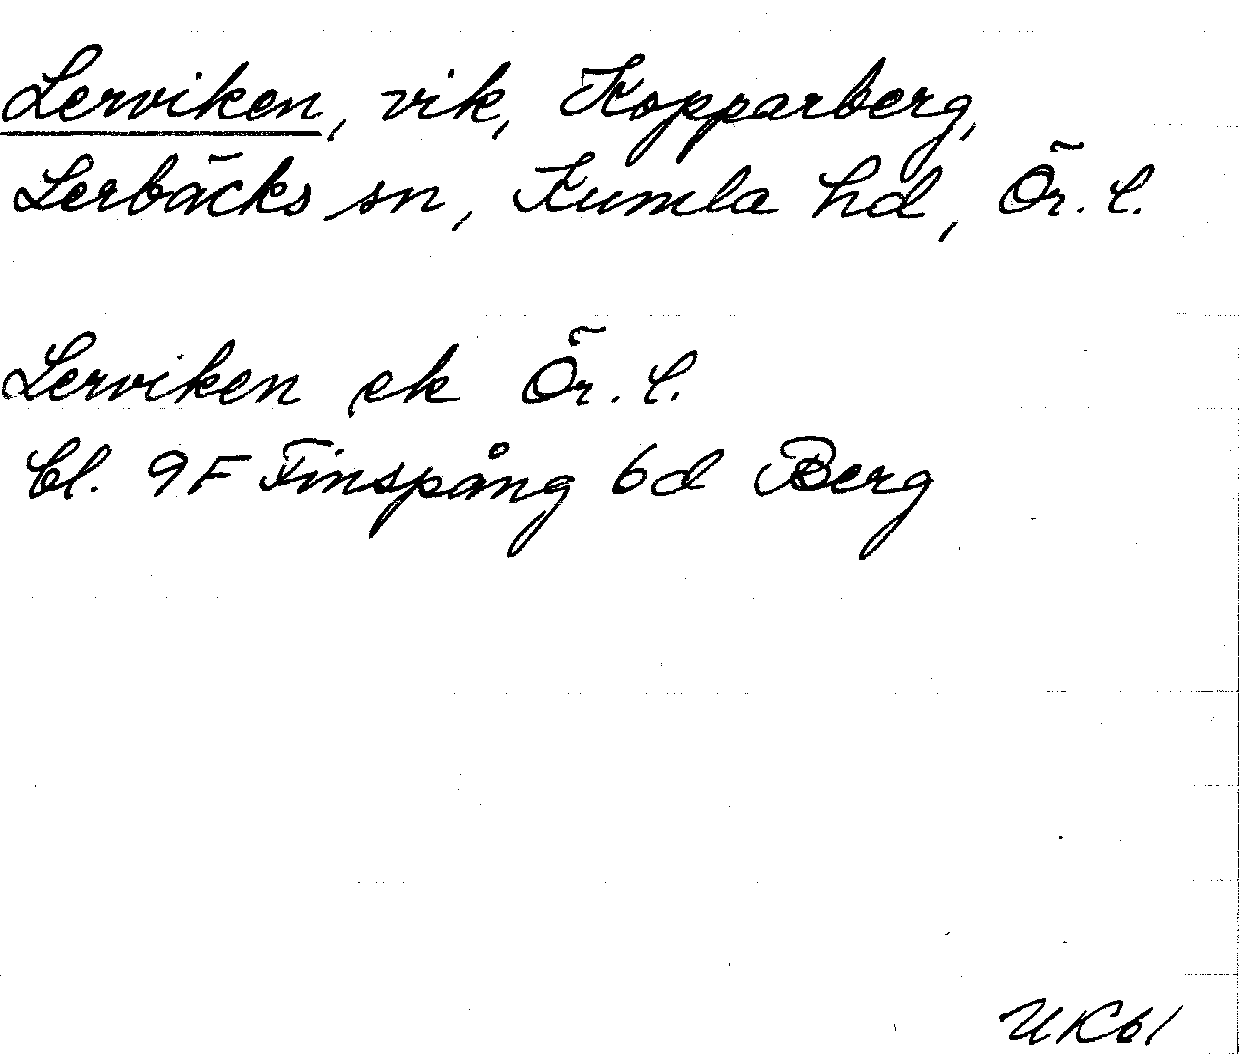 Lerviken, vik, Kopparberg,
Lerbäcks sn, Kumla hd, Ör. l.
Lerviken ek Ör. l.
bl. 9F Finspång 6d Berg
UK61